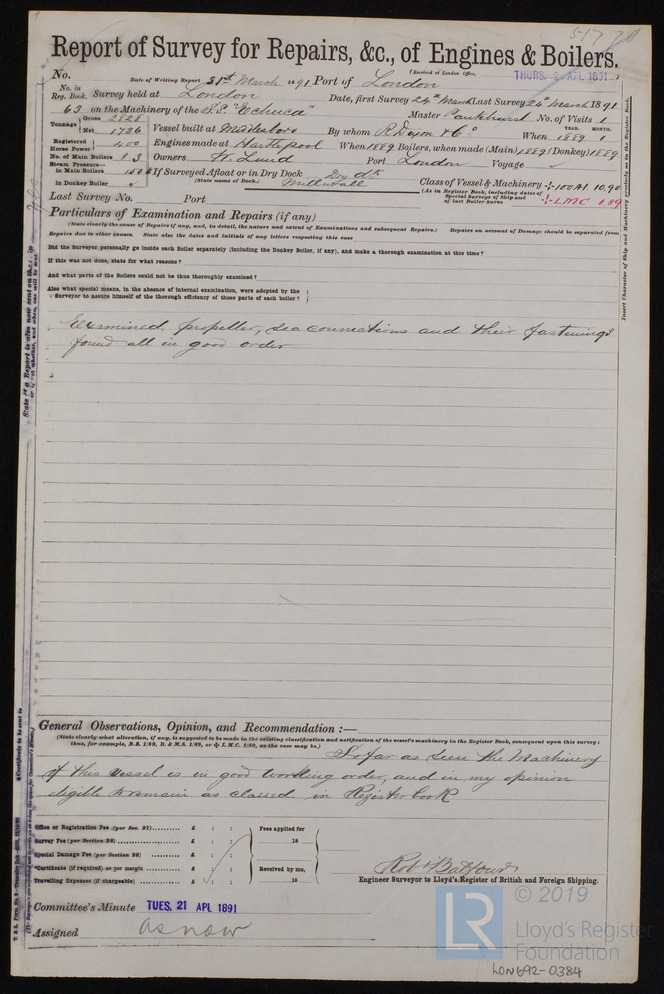 51770
Report of Survey for Repairs, &c., of Engines & Boilers.
(Received at London Office. THURS. 2 APL 1891)
No. Date of Writing Report 31st March 1891 Port of London
No. in Reg. Book. Survey held at London Date, first Survey 24th March Last Survey 24th March 1891
63 on the Machinery of the S.S. "Echuca" Master Pankhurst No. of Visits 1
Tonnage { Gross 2828
Net 1736 Vessel built at Middlesboro By whom R Dixon & Co When YEAR. 1889 MONTH. 1
Registered Horse Power } 400 Engines made at Hartlepool When 1889 Boilers, when made (Main) 1889 (Donkey) 1889
No. of Main Boilers 3 Owners W. Lund Port London Voyage
Steam Pressure— in Main Boilers 150 If Surveyed Afloat or in Dry Dock Dry dk
(State name of Dock.) Millwall
in Donkey Boiler
Class of Vessel & Machinery 100A1 10.90
(As in Register Book, including dates of Special Surveys of Ship and of last Boiler Survey LMC 1.89
Last Survey No. Port
Particulars of Examination and Repairs (if any)
(State clearly the cause of Repairs if any, and, in detail, the nature and extent of Examinations and subsequent Repairs.) Repairs on account of Damage should be separated from
Repairs due to other causes. State also the dates and initials of any letters respecting this case
Did the Surveyor personally go inside each Boiler separately (including the Donkey Boiler, if any), and make a thorough examination at this time?
If this was not done, state for what reasons?
And what parts of the Boilers could not be thus thoroughly examined?
Also what special means, in the absence of internal examination, were adopted by the
Surveyor to assure himself of the thorough efficiency of those parts of each boiler?
Examined propeller, sea connections and their fastenings
found all in good order
Insert Character of Ship and Machinery precisely as in the Register Book.
General Observations, Opinion, and Recommendation :—
(State clearly what alteration, if any, is suggested to be made in the existing classification and notification of the vessel's machinery in the Register Book, consequent upon this survey;
thus, for example, B.S. 1/89, B. & M.S. 1/89, or L.M.C. 1/89, as the case may be.)
So far as seen the Machinery
of this vessel is in good working order, and in my opinion
eligible to remain as classed in Register book
Office or Registration Fee (per Sec. 27) £ : : Fees applied for
Survey Fee (per Section 28) £ : : 18
Special Damage Fee (per Section 28) £ : :
*Certificate (if required) as per margin £ : : Received by me,
Travelling Expenses (if chargeable) £ : : 18
Robt Balfour
Engineer Surveyor to Lloyd's Register of British and Foreign Shipping.
Committee's Minute TUES. 21 APL 1891
Assigned as now
© 2019
LR
Lloyd's Register
Foundation
LON692-0384